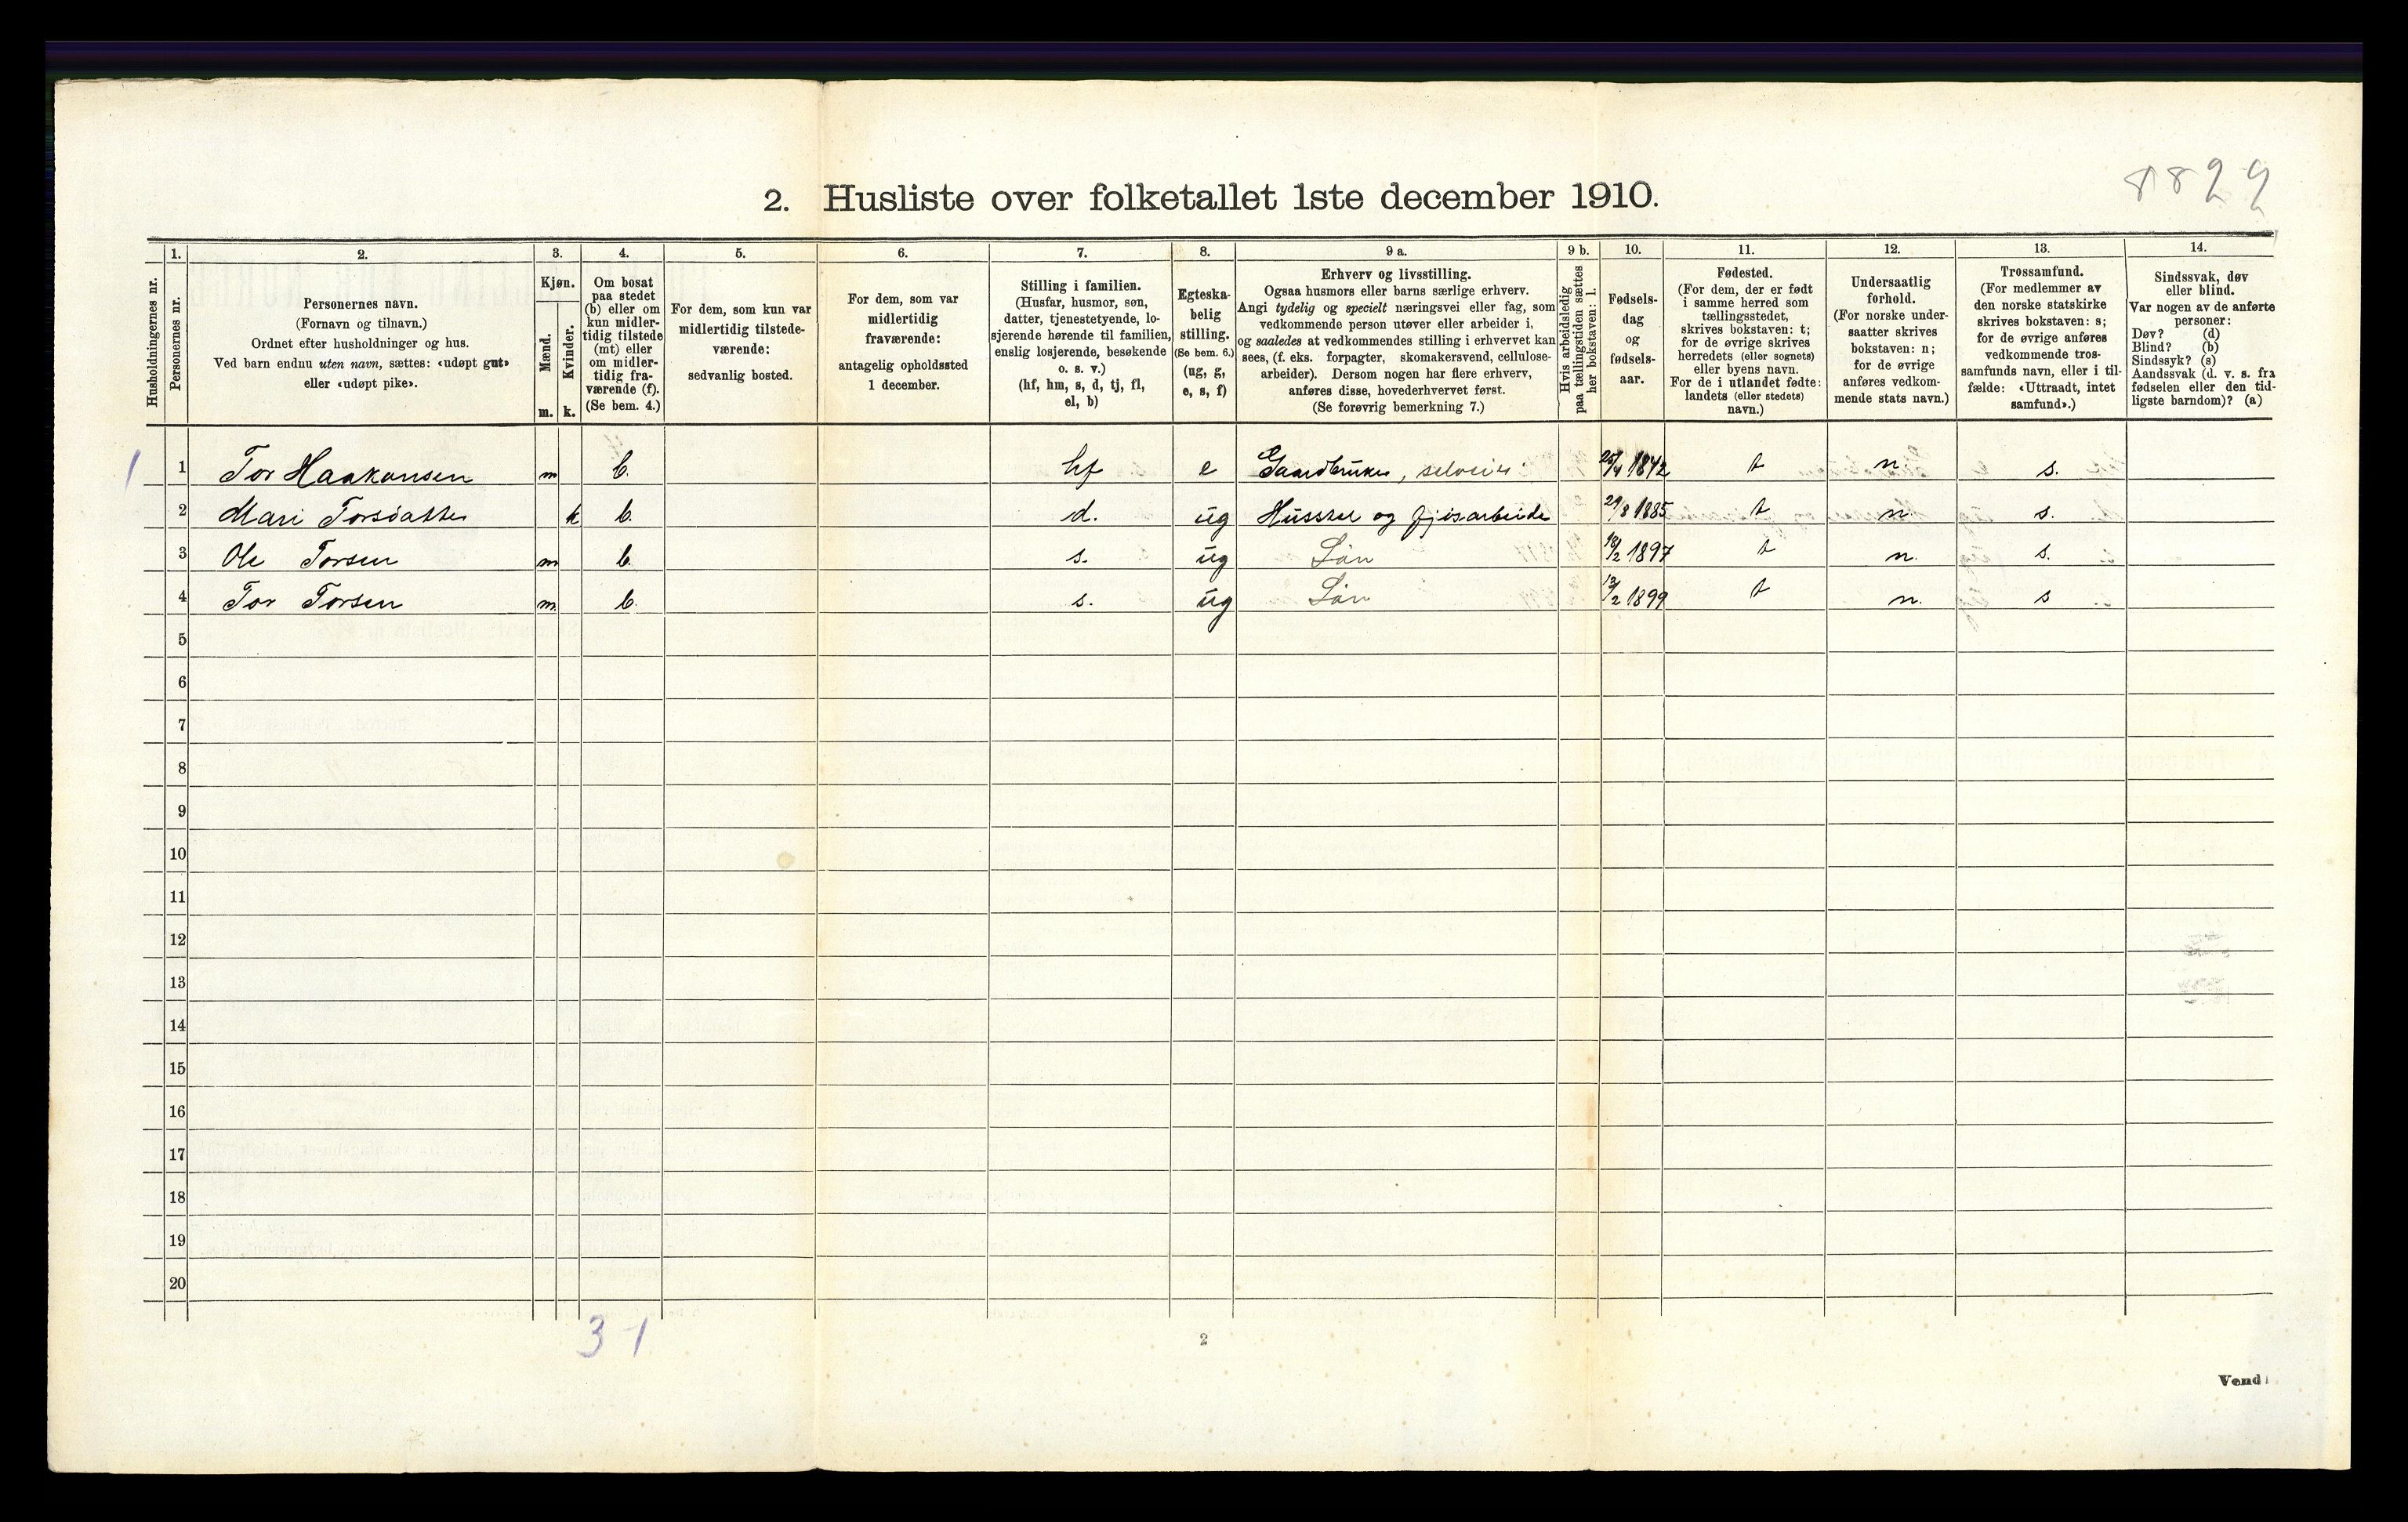 8829
2. Husliste over folketallet 1ste december 1910.
1. 2. 3. 4. 5. 6. 7. 8. 9 a. 9 b. 10. 11. 12. 13. 14.
Husholdningernes nr.
Personernes nr.
Personernes navn.
(Fornavn og tilnavn.)
Ordnet efter husholdninger og hus.
Ved barn endnu uten navn, sættes: «udøpt gut»
eller «udøpt pike».
Kjøn.
Mænd.
Kvinder.
m. k.
Om bosat
paa stedet
(b) eller om
kun midler-
tidig tilstede
(mt) eller
om midler-
tidig fra-
værende (f).
(Se bem. 4.)
For dem, som kun var
midlertidig tilstede-
værende:
sedvanlig bosted.
For dem, som var
midlertidig
fraværende:
antagelig opholdssted
1 december.
Stilling i familien.
(Husfar, husmor, søn,
datter, tjenestetyende, lo-
sjerende hørende til familien,
enslig losjerende, besøkende
o. s. v.)
(hf, hm, s, d, tj, fl,
el, b)
Egteska-
belig
stilling.
(Se bem. 6.)
(ug, g,
e, s, f)
Erhverv og livsstilling.
Ogsaa husmors eller barns særlige erhverv.
Angi tydelig og specielt næringsvei eller fag, som
vedkommende person utøver eller arbeider i,
og saaledes at vedkommendes stilling i erhvervet kan
sees, (f. eks. forpagter, skomakersvend, cellulose-
arbeider). Dersom nogen har flere erhverv,
anføres disse, hovederhvervet først.
(Se forøvrig bemerkning 7.)
Hvis arbeidsledig
paa tællingstiden sættes
her bokstaven: l.
Fødsels-
dag
og
fødsels-
aar.
Fødested.
(For dem, der er født
i samme herred som
tællingsstedet,
skrives bokstaven: t;
for de øvrige skrives
herredets (eller sognets)
eller byens navn.
For de i utlandet fødte:
landets (eller stedets)
navn.)
Undersaatlig
forhold.
(For norske under-
saatter skrives
bokstaven: n;
for de øvrige
anføres vedkom-
mende stats navn.)
Trossamfund.
(For medlemmer av
den norske statskirke
skrives bokstaven: s;
for de øvrige anføres
vedkommende tros-
samfunds navn, eller i til-
fælde: «Uttraadt, intet
samfund».)
Sindssvak, døv
eller blind.
Var nogen av de anførte
personer:
Døv? (d)
Blind? (b)
Sindssyk? (s)
Aandssvak (d. v. s. fra
fødselen eller den tid-
ligste barndom)? (a)
1 1 Tor Haakansen m b. hf e Gaardbruker, selveier 25/4 1842 t n. s.
2 Mari Torsdatter k b. d. ug Husstel og fjøsarbeide 29/8 1885 t n. s.
3 Ole Torsen m b. s. ug Søn 18/2 1897 t n. s.
4 Tor Torsen m. b. s. ug Søn 13/2 1899 t n. s
5
6
7
8
9
10
11
12
13
14
15
16
17
18
19
20
3 1
2
Vend